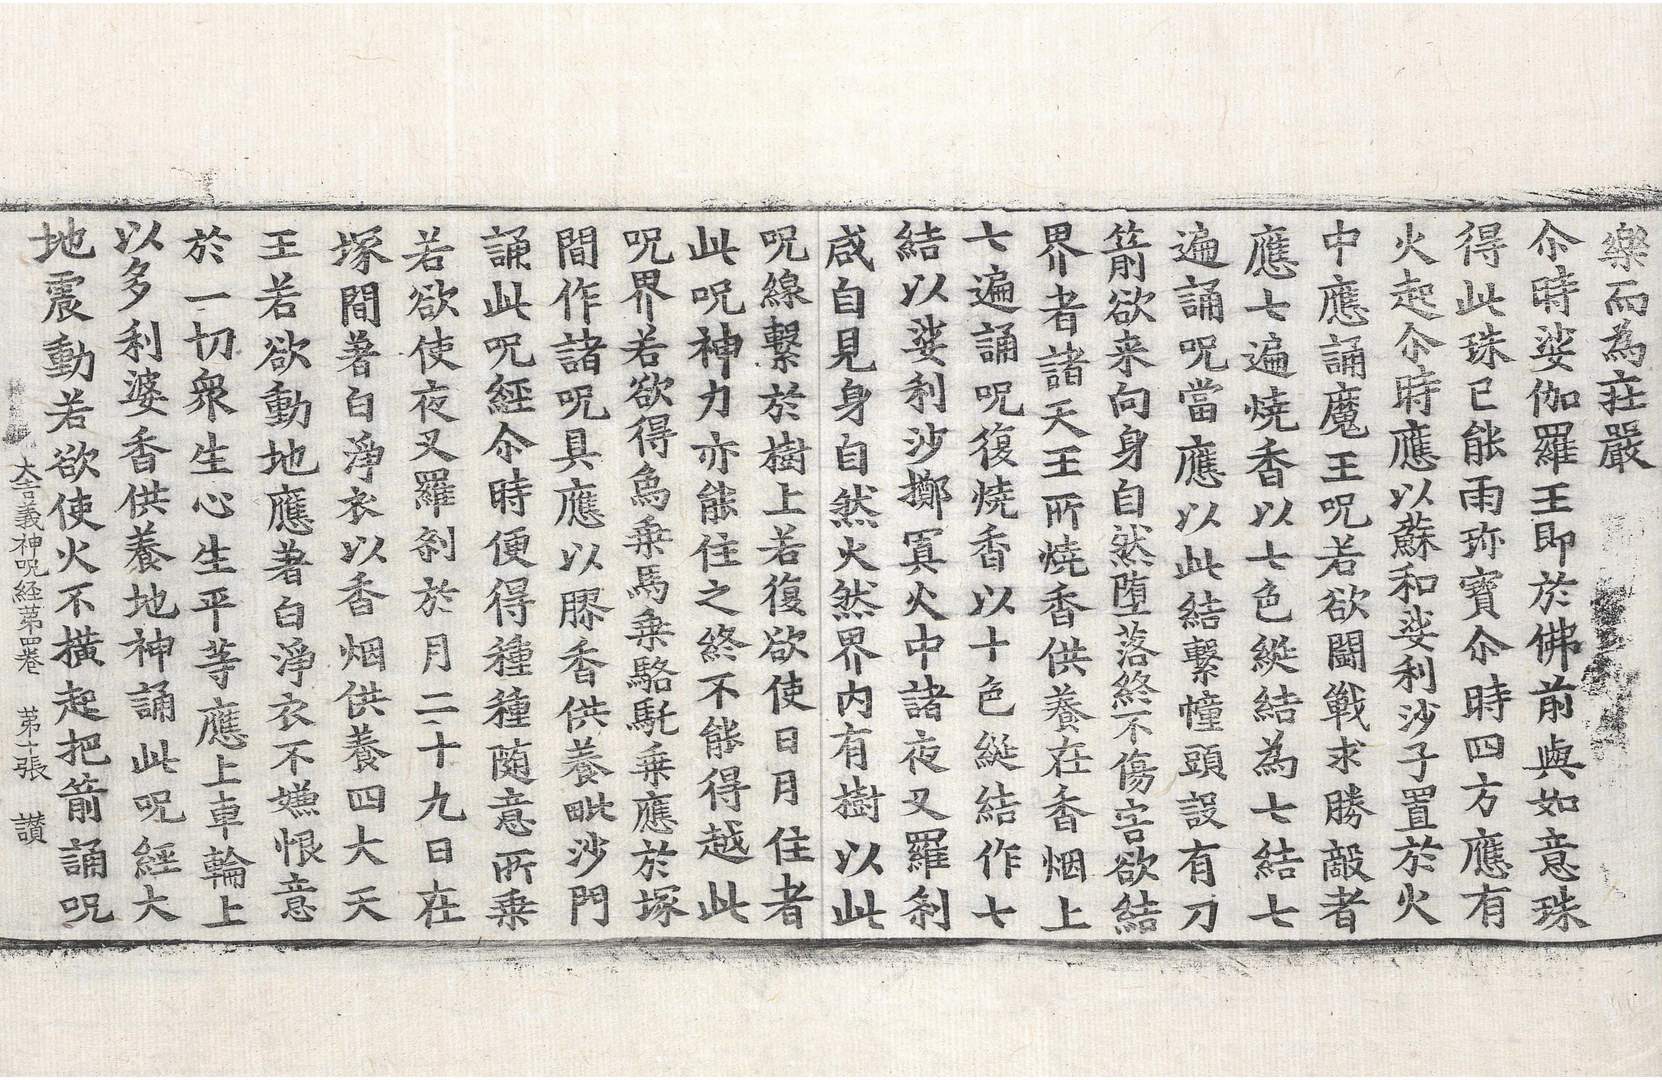 樂而為莊嚴
尒時娑伽羅王即於佛前與如意珠
得此珠已能雨珎寶尒時四方應有
火起尒時應以蘇和娑利沙子置於火
中應誦魔王呪若欲鬪戰求勝敵者
應七遍燒香以七色綖結為七結七
遍誦呪當應以此結繫幢頭設有刀
箭欲来向身自然堕落終不傷害欲結
界者諸天王所燒香供養在香烟上
七遍誦呪復燒香以十色綖結作七
結以娑利沙擲冥火中諸夜叉羅刹
咸自見身自然火然界内有樹以此
呪線繫於樹上若復欲使日月住者
此呪神力亦能住之終不能得越此
呪界若欲得烏乗馬乗駱馳乗應於塚
間作諸呪具應以膠香供養毗沙門
誦此呪經尒時便得種種随意所乗
若欲使夜叉羅刹於月二十九日在
塚間著白淨衣以香烟供養四大天
王若欲動地應著白淨衣不嫌恨意
於一切衆生心生平等應上車輪上
以多利婆香供養地神誦此呪經大
地震動若欲使火不横起把箭誦呪
大吉義神呪経第四卷 第十張 讃